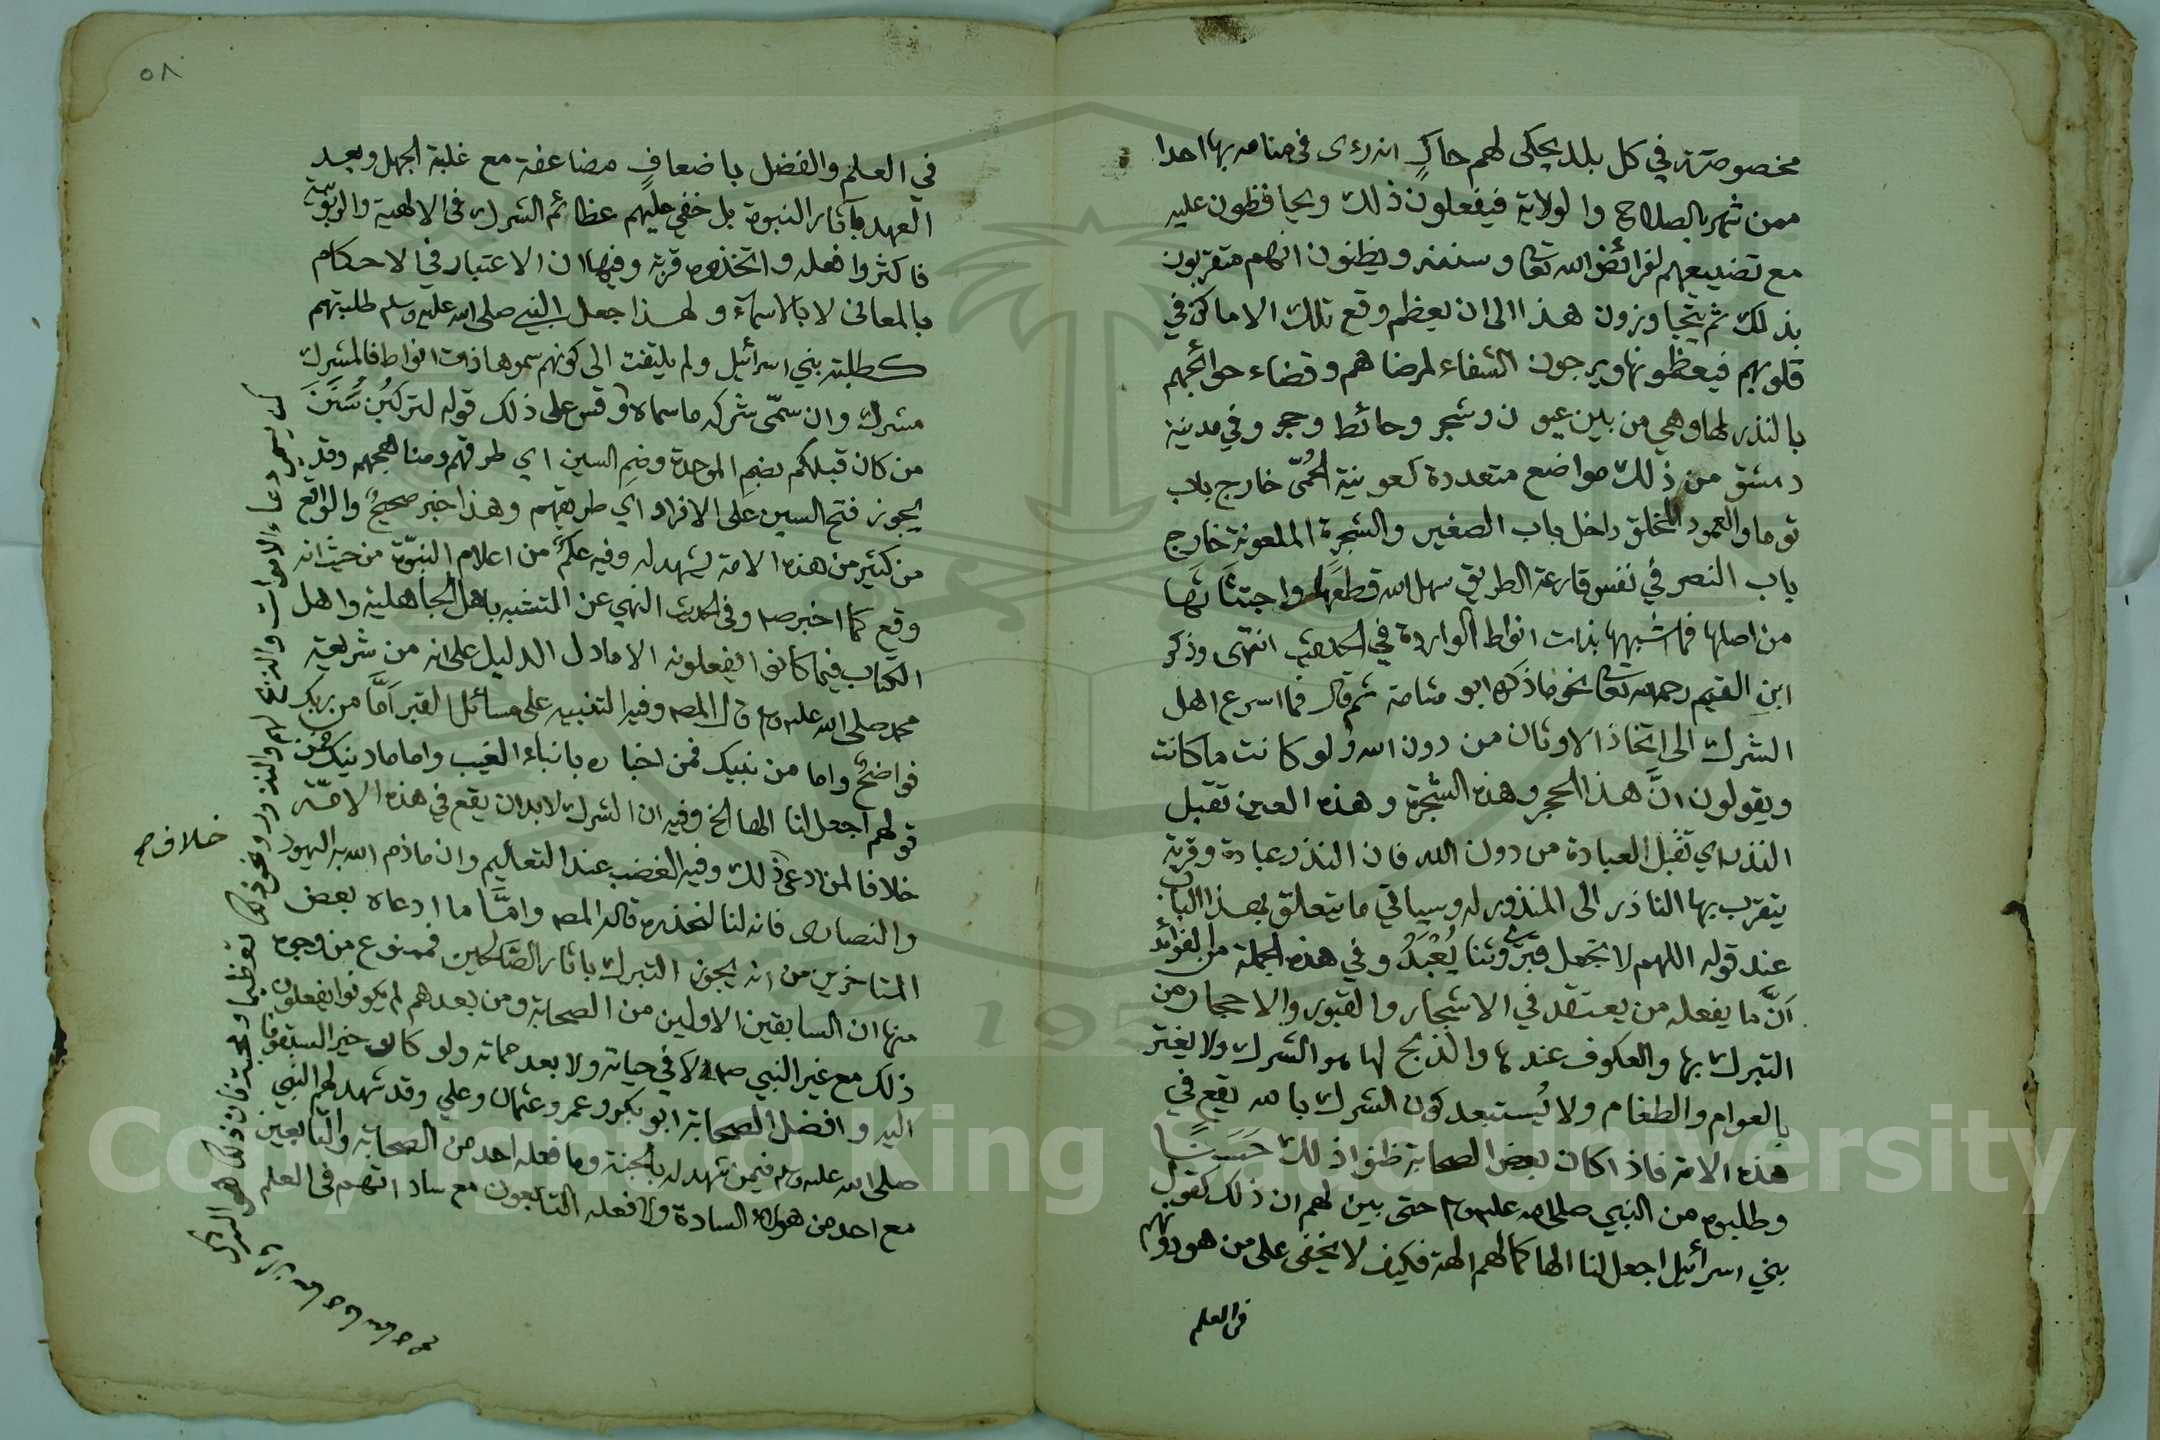 مخصوصة في كل بلد يحكى لهم حاكٍ انه رءى في منامه بها احدا
ممن شهر بالصلاح والولاية فيفعلون ذلك ويحافظون عليه
مع تضييعهم لفرائض الله تعا وسننه ويظنون انهم متقربون
بذلك ثم يتجاوزون هذا الى ان يعظم وقع تلك الاماكن في
قلوبهم فيعظمونها ويرجون الشفاء لمرضاهم وقضاء حوائجهم
بالنذر لها وهي من بين عيون وشجر وحائط وحجر وفي مدينة
دمشق من ذلك مواضع متعددة كعوينة الحُمّى خارج باب
توما والعمود المخلق داخل باب الصغير والشجرة الملعونة خارج
باب النصر في نفس قارعة الطريق سهل الله قطعها واجتثاثها
من اصلها فما اشبهها بذات انواط الواردة في الحديث انتهى وذكر
ابن القيم رحمه الله تعا نحو ما ذكره ابو شامة ثم قال فما اسرع اهل
الشرك الى اتخاذ الاوثان من دون الله ولو كانت ما كانت
ويقولون انَّ هذا الحجر وهذه الشجرة وهذه العين تقبل
النذر اي تقبل العبادة من دون الله فان النذر عبادة وقربة
يتقرب بها الناذر الى المنذور له وسياتي ما يتعلق بهذا الباب
عند قوله اللهم لا تجعل قبري وثنا يُعْبَدُ وفي هذه الجملة من الفوائد
اَنَّ ما يفعله من يعتقد في الاشجار والقبور والاحجار من
التبرك بها والعكوف عندها والذبح لها هو الشرك ولا يغتر
بالعوام والطغام ولا يُستبعد كون الشرك بالله يقع في
هذه الامة فاذا كان بعض الصحابة ظنوا ذلك حَسَنًا
وطلبوه من النبي صلى الله عليه وسلم حتى بين لهم ان ذلك كقول
بني اسرائيل اجعل لنا الها كما لهم الهة فكيف لا يخفى على من هو دونهم
في العلم
٥٨
في العلم والفضل باضعافٍ مضاعفة مع غلبة الجهل وبعد
العهد بآثار النبوة بل خفي عليهم عظائم الشرك في الالهية والربوبية
فاكثروا فعله واتخذوه قربة وفيها ان الاعتبار في الاحكام
بالمعاني لا بالاسماء ولهذا جعل النبي صلى الله عليه وسلم طلبتهم
كطلبة بني اسرائيل ولم يلتفت الى كونهم سموها ذات انواط فالمشرك
مشرك وان سمّى شركه ما سماه وقس على ذلك قوله لتركبُن سُنَنَ
من كان قبلكم بضم الموحدة وضم السين اي طرقهم ومناهجهم وقد
يجوز فتح السين على الافراد اي طريقهم وهذا خبر صحيح والواقع
من كثير من هذه الامة يشهد له وفيه علمٌ من اعلام النبوّة من حيث انه
وقع كما اخبر صم وفي الحديث النهي عن التشبه باهل الجاهلية واهل
الكتاب فيما كانوا يفعلونه الا ما دل الدليل على انه من شريعة
محمد صلى الله عليه وسلم قال المص وفيه التنبيه على مسائل القبر اَمَّا من ربك
فواضح واما من نبيك فمن اخباره بانباء الغيب واما ما دينك فمن
قولهم اجعل لنا الها الخ وفيه ان الشرك لا بد ان يقع في هذه الامّة
خلافا لمن ادعى ذلك وفيه الغضب عند التعليم وان ما ذم الله به اليهود
والنصارى فانه لنا لنحذره قاله المص وامَّا ما ادعاه بعض
المتاخرين من انه يجوز التبرك باثار الصّالحين فممنوع من وجوه
منها ان السابقين الاولين من الصحابة ومن بعدهم لم يكونوا يفعلون
ذلك مع غير النبي صم لا في حياته ولا بعد مماته ولو كان خيرا لسبقونا
اليه وافضل الصحابة ابو بكر وعمر وعثمان وعلي وقد شهد لهم النبي
صلى الله عليه وسلم فيمن شهد له بالجنة وما فعله احد من الصحابة والتابعين
مع احد من هؤلاء السادة ولا فعله التابعون مع ساداتهم في العلم
خلاف
يسمى دعاء الاموات والذبح لهم والنذر ونحو ذلك تعظيما ومحبة فان ذلك هو الشرك
Copyright © King Saud University
195